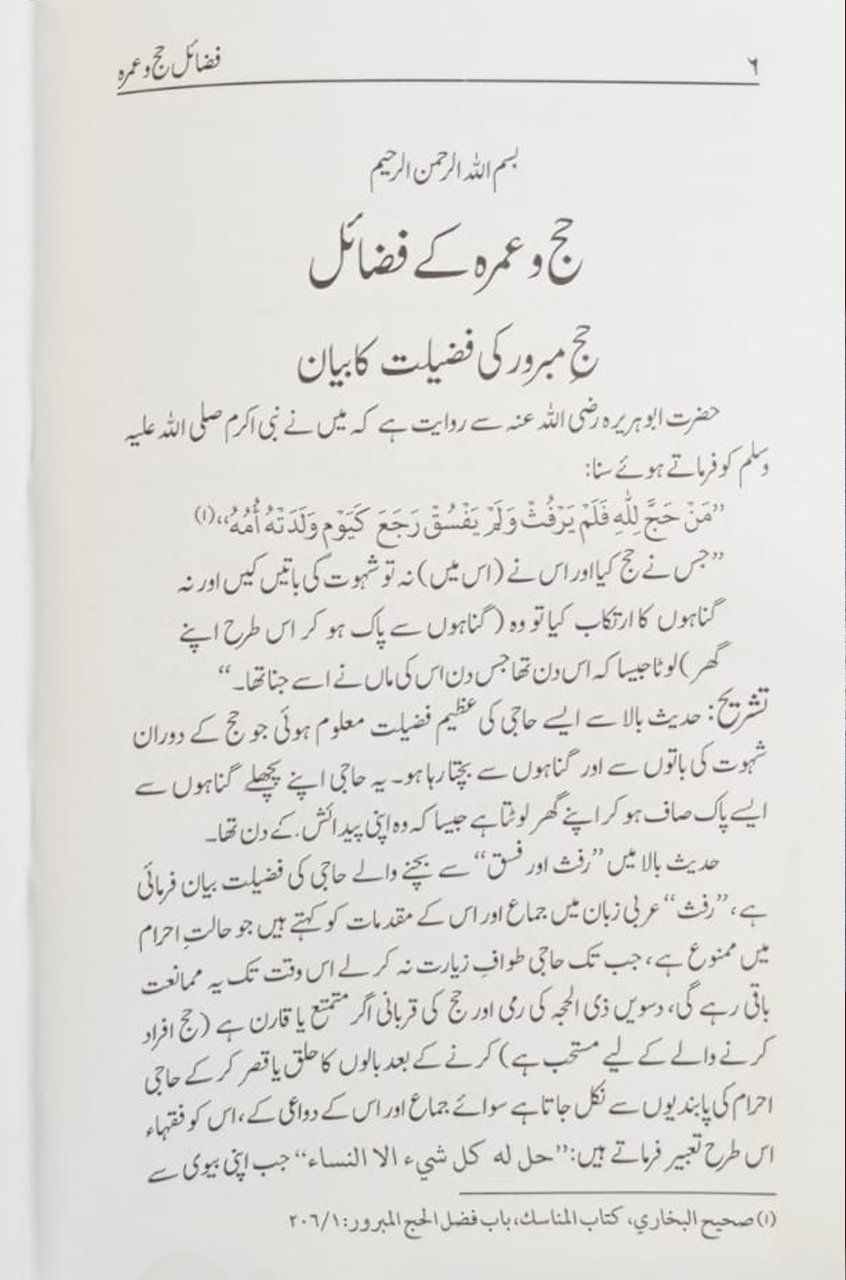 ۶ فضائل حج و عمرہ
بسم اللہ الرحمن الرحیم
حج و عمرہ کے فضائل
حجِ مبرور کی فضیلت کا بیان
حضرت ابو ہریرہ رضی اللہ عنہ سے روایت ہے کہ میں نے نبی اکرم صلی اللہ علیہ
وسلم کو فرماتے ہوئے سنا:
”مَنْ حَجَّ لِلّٰهِ فَلَمْ يَرْفُثْ وَلَمْ يَفْسُقْ رَجَعَ كَيَوْمِ وَلَدَتْهُ أُمُّهُ“(۱)
”جس نے حج کیا اور اس نے (اس میں) نہ تو شہوت کی باتیں کیں اور نہ
گناہوں کا ارتکاب کیا تو وہ (گناہوں سے پاک ہو کر اس طرح اپنے
گھر) لوٹا جیسا کہ اس دن تھا جس دن اس کی ماں نے اسے جنا تھا۔“
تشریح: حدیث بالا سے ایسے حاجی کی عظیم فضیلت معلوم ہوئی جو حج کے دوران
شہوت کی باتوں سے اور گناہوں سے بچتا رہا ہو۔ یہ حاجی اپنے پچھلے گناہوں سے
ایسے پاک صاف ہو کر اپنے گھر لوٹتا ہے جیسا کہ وہ اپنی پیدائش کے دن تھا۔
حدیث بالا میں ”رفث اور فسق“ سے بچنے والے حاجی کی فضیلت بیان فرمائی
ہے، ”رفث“ عربی زبان میں جماع اور اس کے مقدمات کو کہتے ہیں جو حالتِ احرام
میں ممنوع ہے، جب تک حاجی طوافِ زیارت نہ کر لے اس وقت تک یہ ممانعت
باقی رہے گی، دسویں ذی الحجہ کی رمی اور حج کی قربانی اگر متمتع یا قارن ہے (حج افراد
کرنے والے کے لیے مستحب ہے) کرنے کے بعد بالوں کا حلق یا قصر کر کے حاجی
احرام کی پابندیوں سے نکل جاتا ہے سوائے جماع اور اس کے دواعی کے، اس کو فقہاء
اس طرح تعبیر فرماتے ہیں: ”حل له كل شيء الا النساء“ جب اپنی بیوی سے
(۱) صحیح البخاري، كتاب المناسك، باب فضل الحج المبرور: ۲۰۶/۱